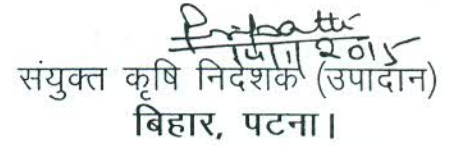 14/1/2015
संयुक्त कृषि निदेशक (उपादान)
बिहार, पटना।